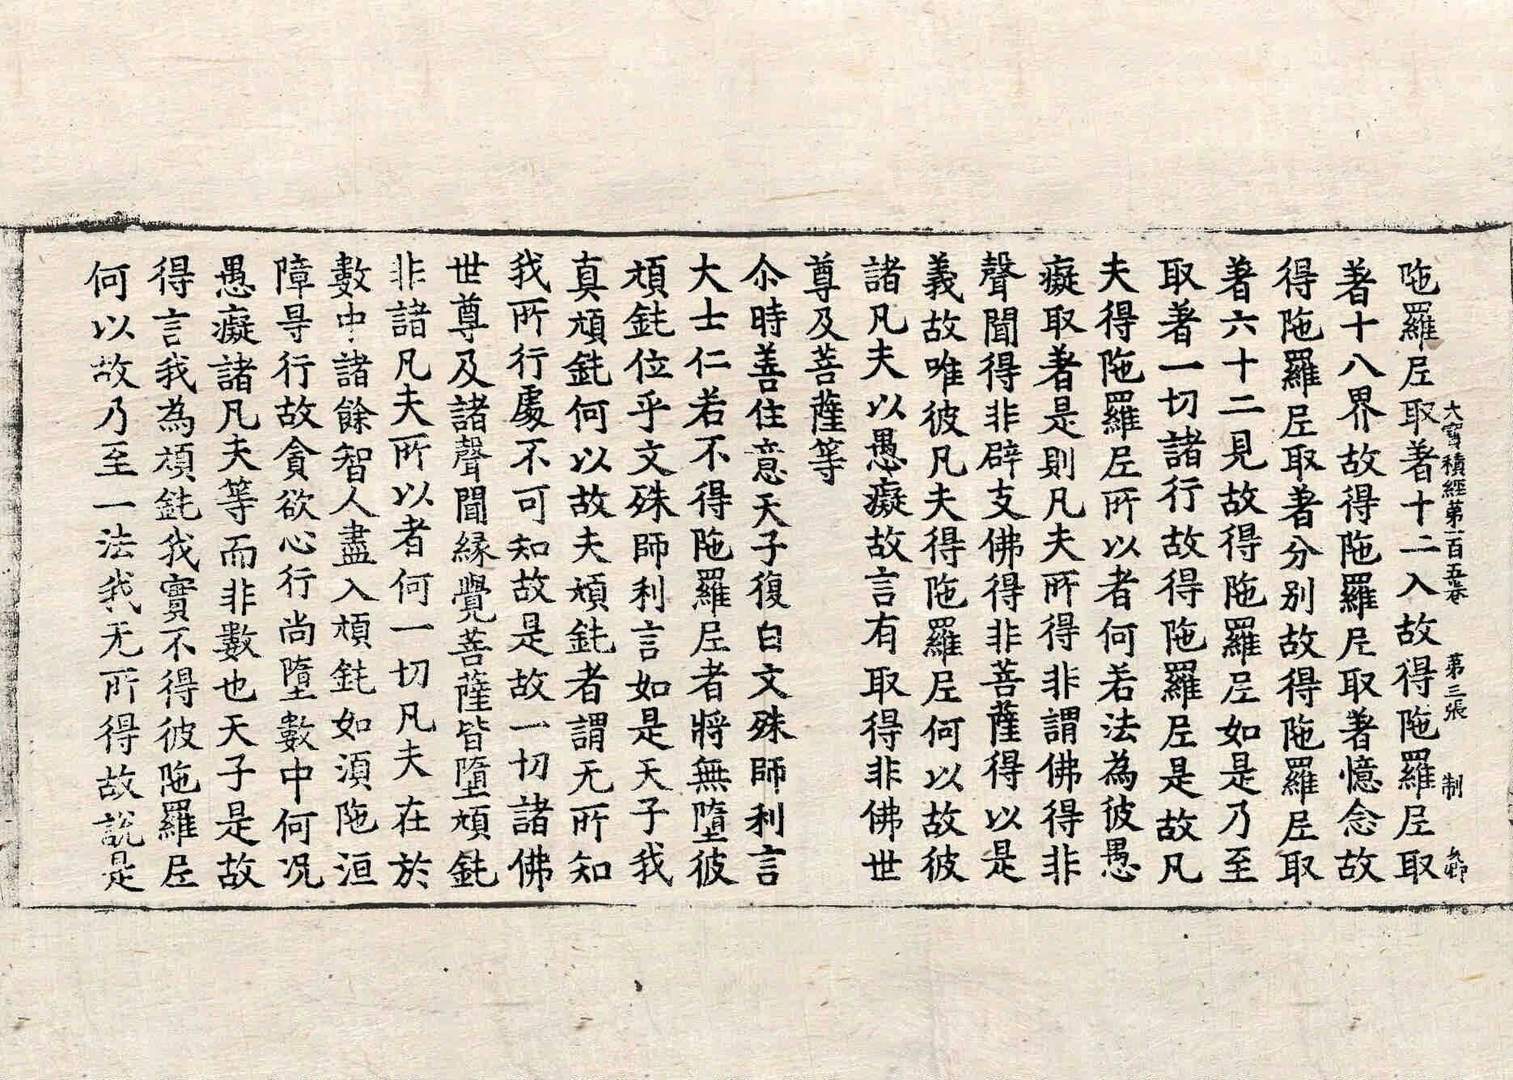 大寶積經第一百五卷 第三張 制
陁羅尼取著十二入故得陁羅尼取
著十八界故得陁羅尼取著憶念故
得陁羅尼取著分別故得陁羅尼取
著六十二見故得陁羅尼如是乃至
取著一切諸行故得陁羅尼是故凡
夫得陁羅尼所以者何若法為彼愚
癡取著是則凡夫所得非謂佛得非
聲聞得非辟支佛得非菩薩得以是
義故唯彼凡夫得陁羅尼何以故彼
諸凡夫以愚癡故言有取得非佛世
尊及菩薩等
尒時善住意天子復白文殊師利言
大士仁若不得陁羅尼者將無墮彼
頑鈍位乎文殊師利言如是天子我
真頑鈍何以故夫頑鈍者謂无所知
我所行處不可知故是故一切諸佛
世尊及諸聲聞緣覺菩薩皆墮頑鈍
非諸凡夫所以者何一切凡夫在於
數中諸餘智人盡入頑鈍如湏陁洹
障㝵行故貪欲心行尚墮數中何况
愚癡諸凡夫等而非數也天子是故
得言我為頑鈍我實不得彼陁羅尼
何以故乃至一法我无所得故說是